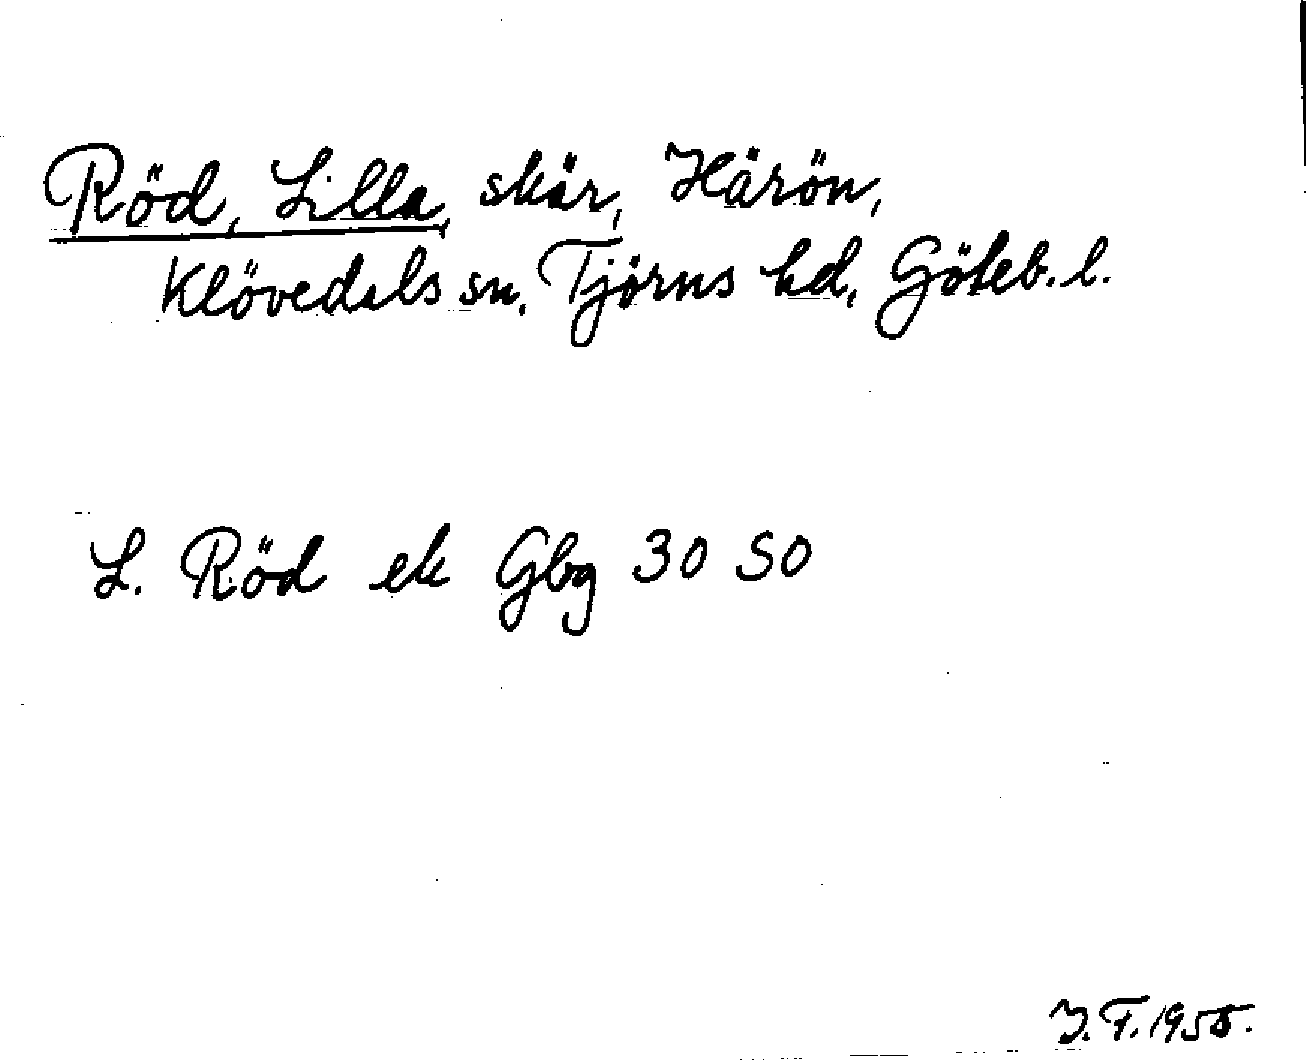 Röd, Lilla, skär, Härön,
Klövedals sn, Tjörns hd, Göteb. l.
L. Röd ek Gbg 30 SO
J. F. 1955.